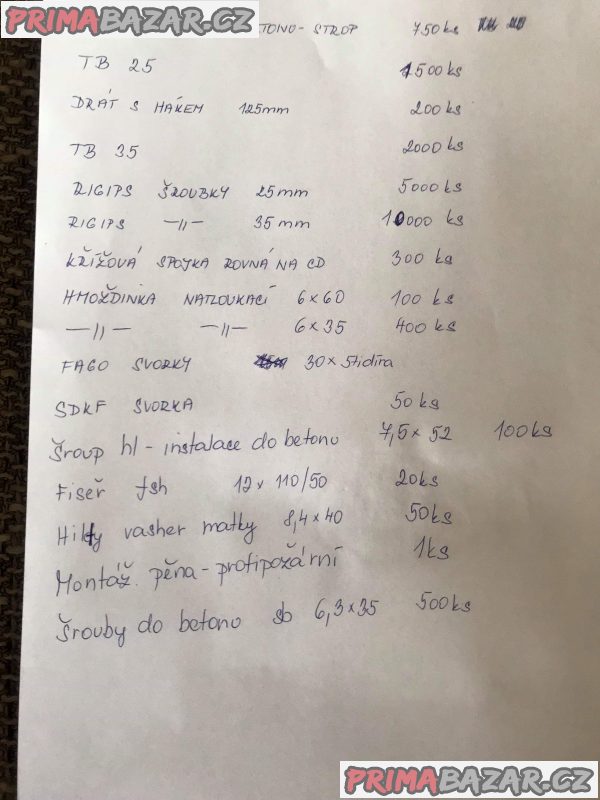 PRIMABAZAR.CZ
BETONO - STROP 750 ks
TB 25 1500 ks
DRÁT S HÁKEM 125mm 200 ks
TB 35 2000 ks
RIGIPS ŠROUBKY 25mm 5000 ks
RIGIPS —||— 35mm 10000 ks
KŘÍŽOVÁ SPOJKA ROVNÁ NA CD 300 ks
HMOŽDINKA NATLOUKACÍ 6×60 100 ks
—||— —||— 6×35 400 ks
FAGO SVORKY 30×5tidíra
SDKF SVORKA 50 ks
Šroup hl - instalace do betonu 7,5×52 100ks
Fiseř fsh 12× 110/50 20ks
Hilty vasher matky 8,4×40 50ks
Montáž. pěna - protipožární 1ks
Šrouby do betonu 6,3×35 500ks
PRIMABAZAR.CZ